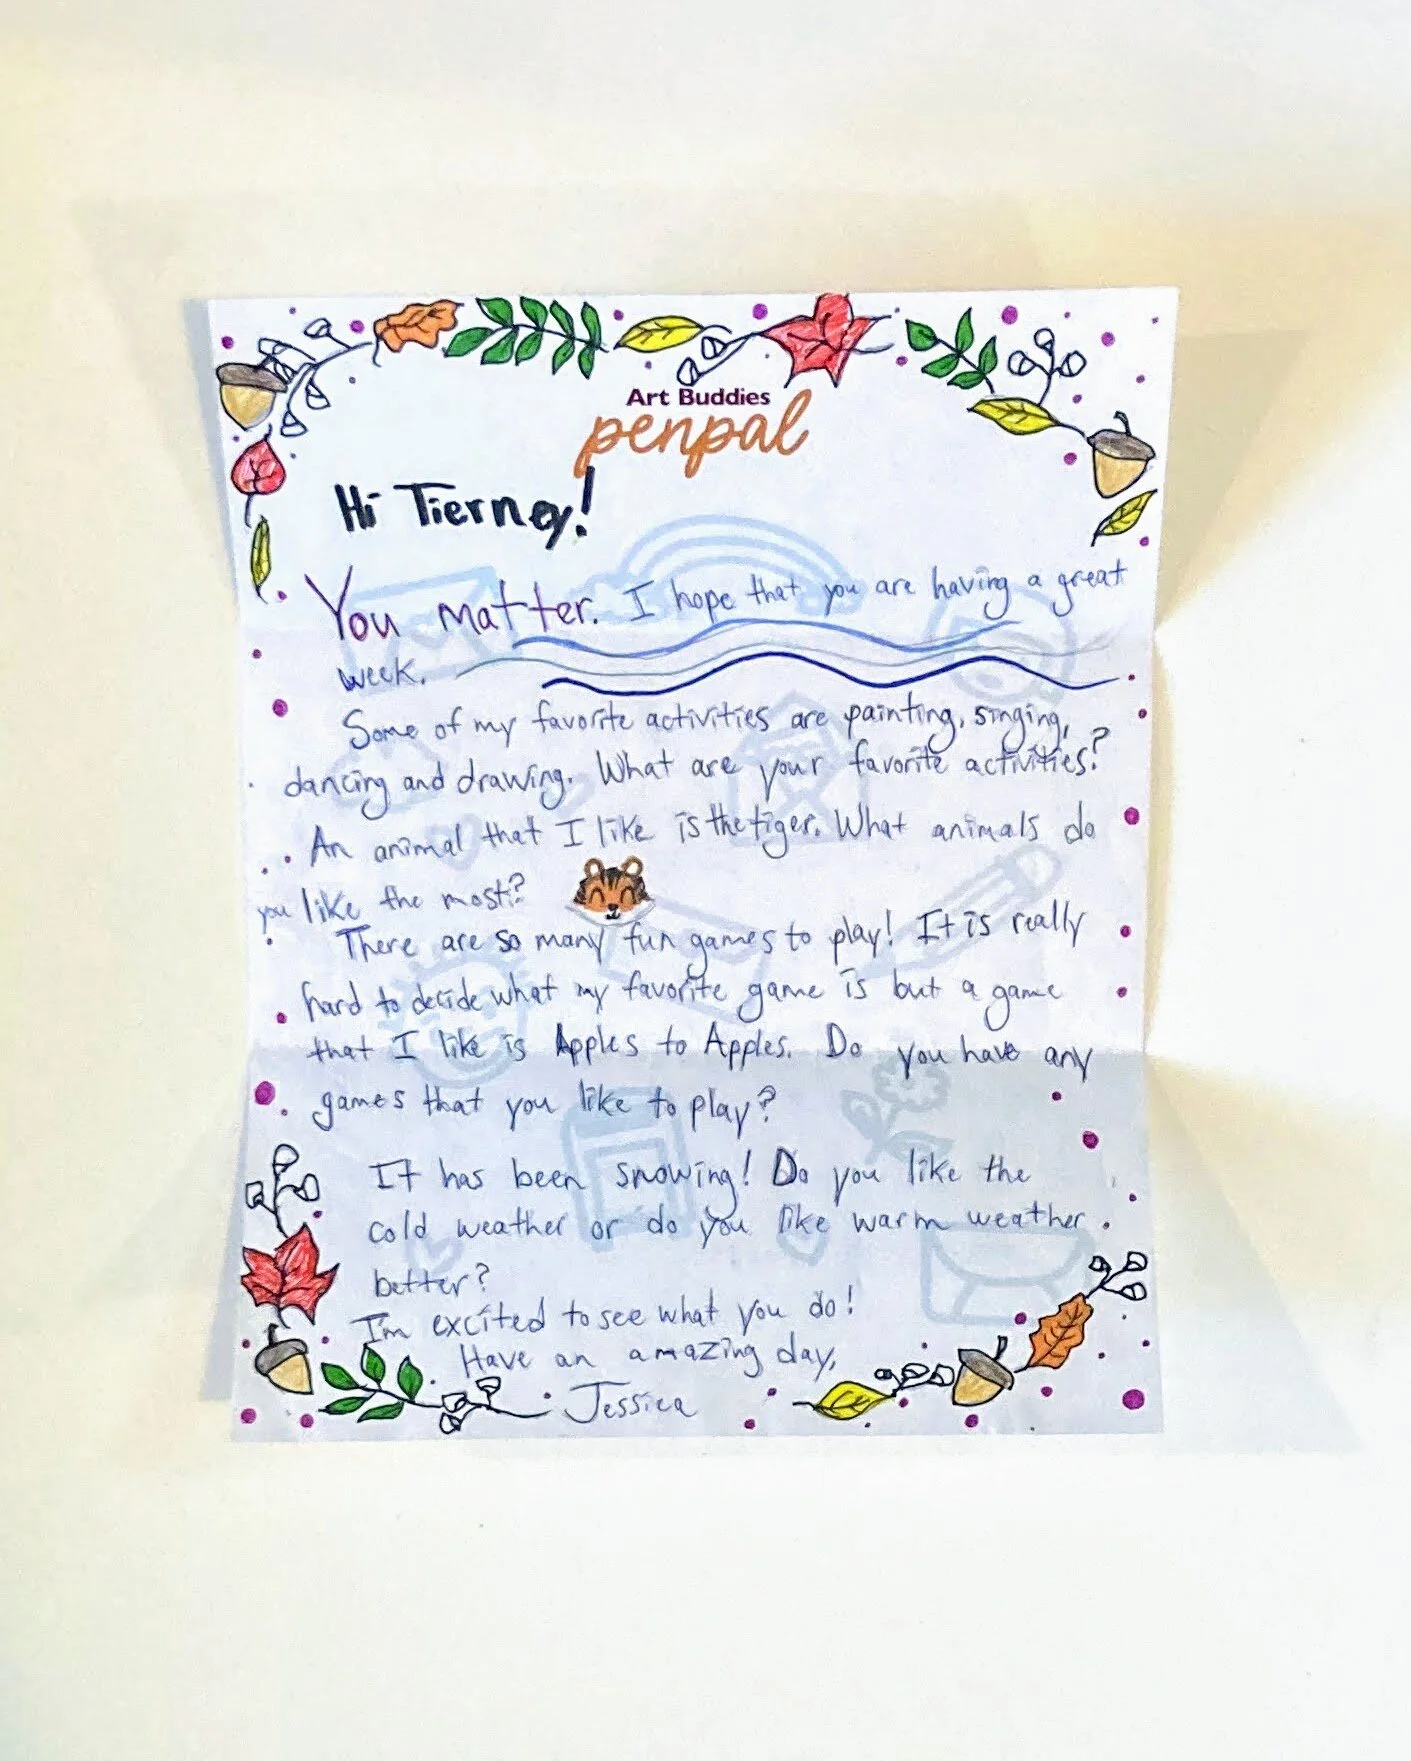 Art Buddies
penpal
Hi Tierney!
You matter. I hope that you are having a great
week.
Some of my favorite activities are painting, singing,
dancing and drawing. What are your favorite activities?
An animal that I like is the tiger. What animals do
you like the most?
There are so many fun games to play! It is really
hard to decide what my favorite game is but a game
that I like is Apples to Apples. Do you have any
games that you like to play?
It has been snowing! Do you like the
cold weather or do you like warm weather
better?
I'm excited to see what you do!
Have an amazing day,
Jessica